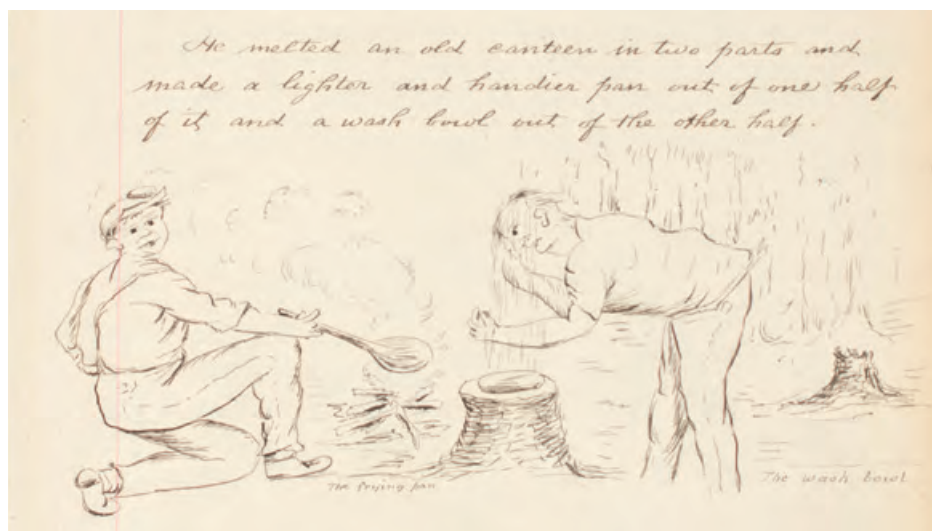 He melted an old canteen in two parts and
made a lighter and handier pan out of one half
of it and a wash bowl out of the other half.
The frying pan
The wash bowl